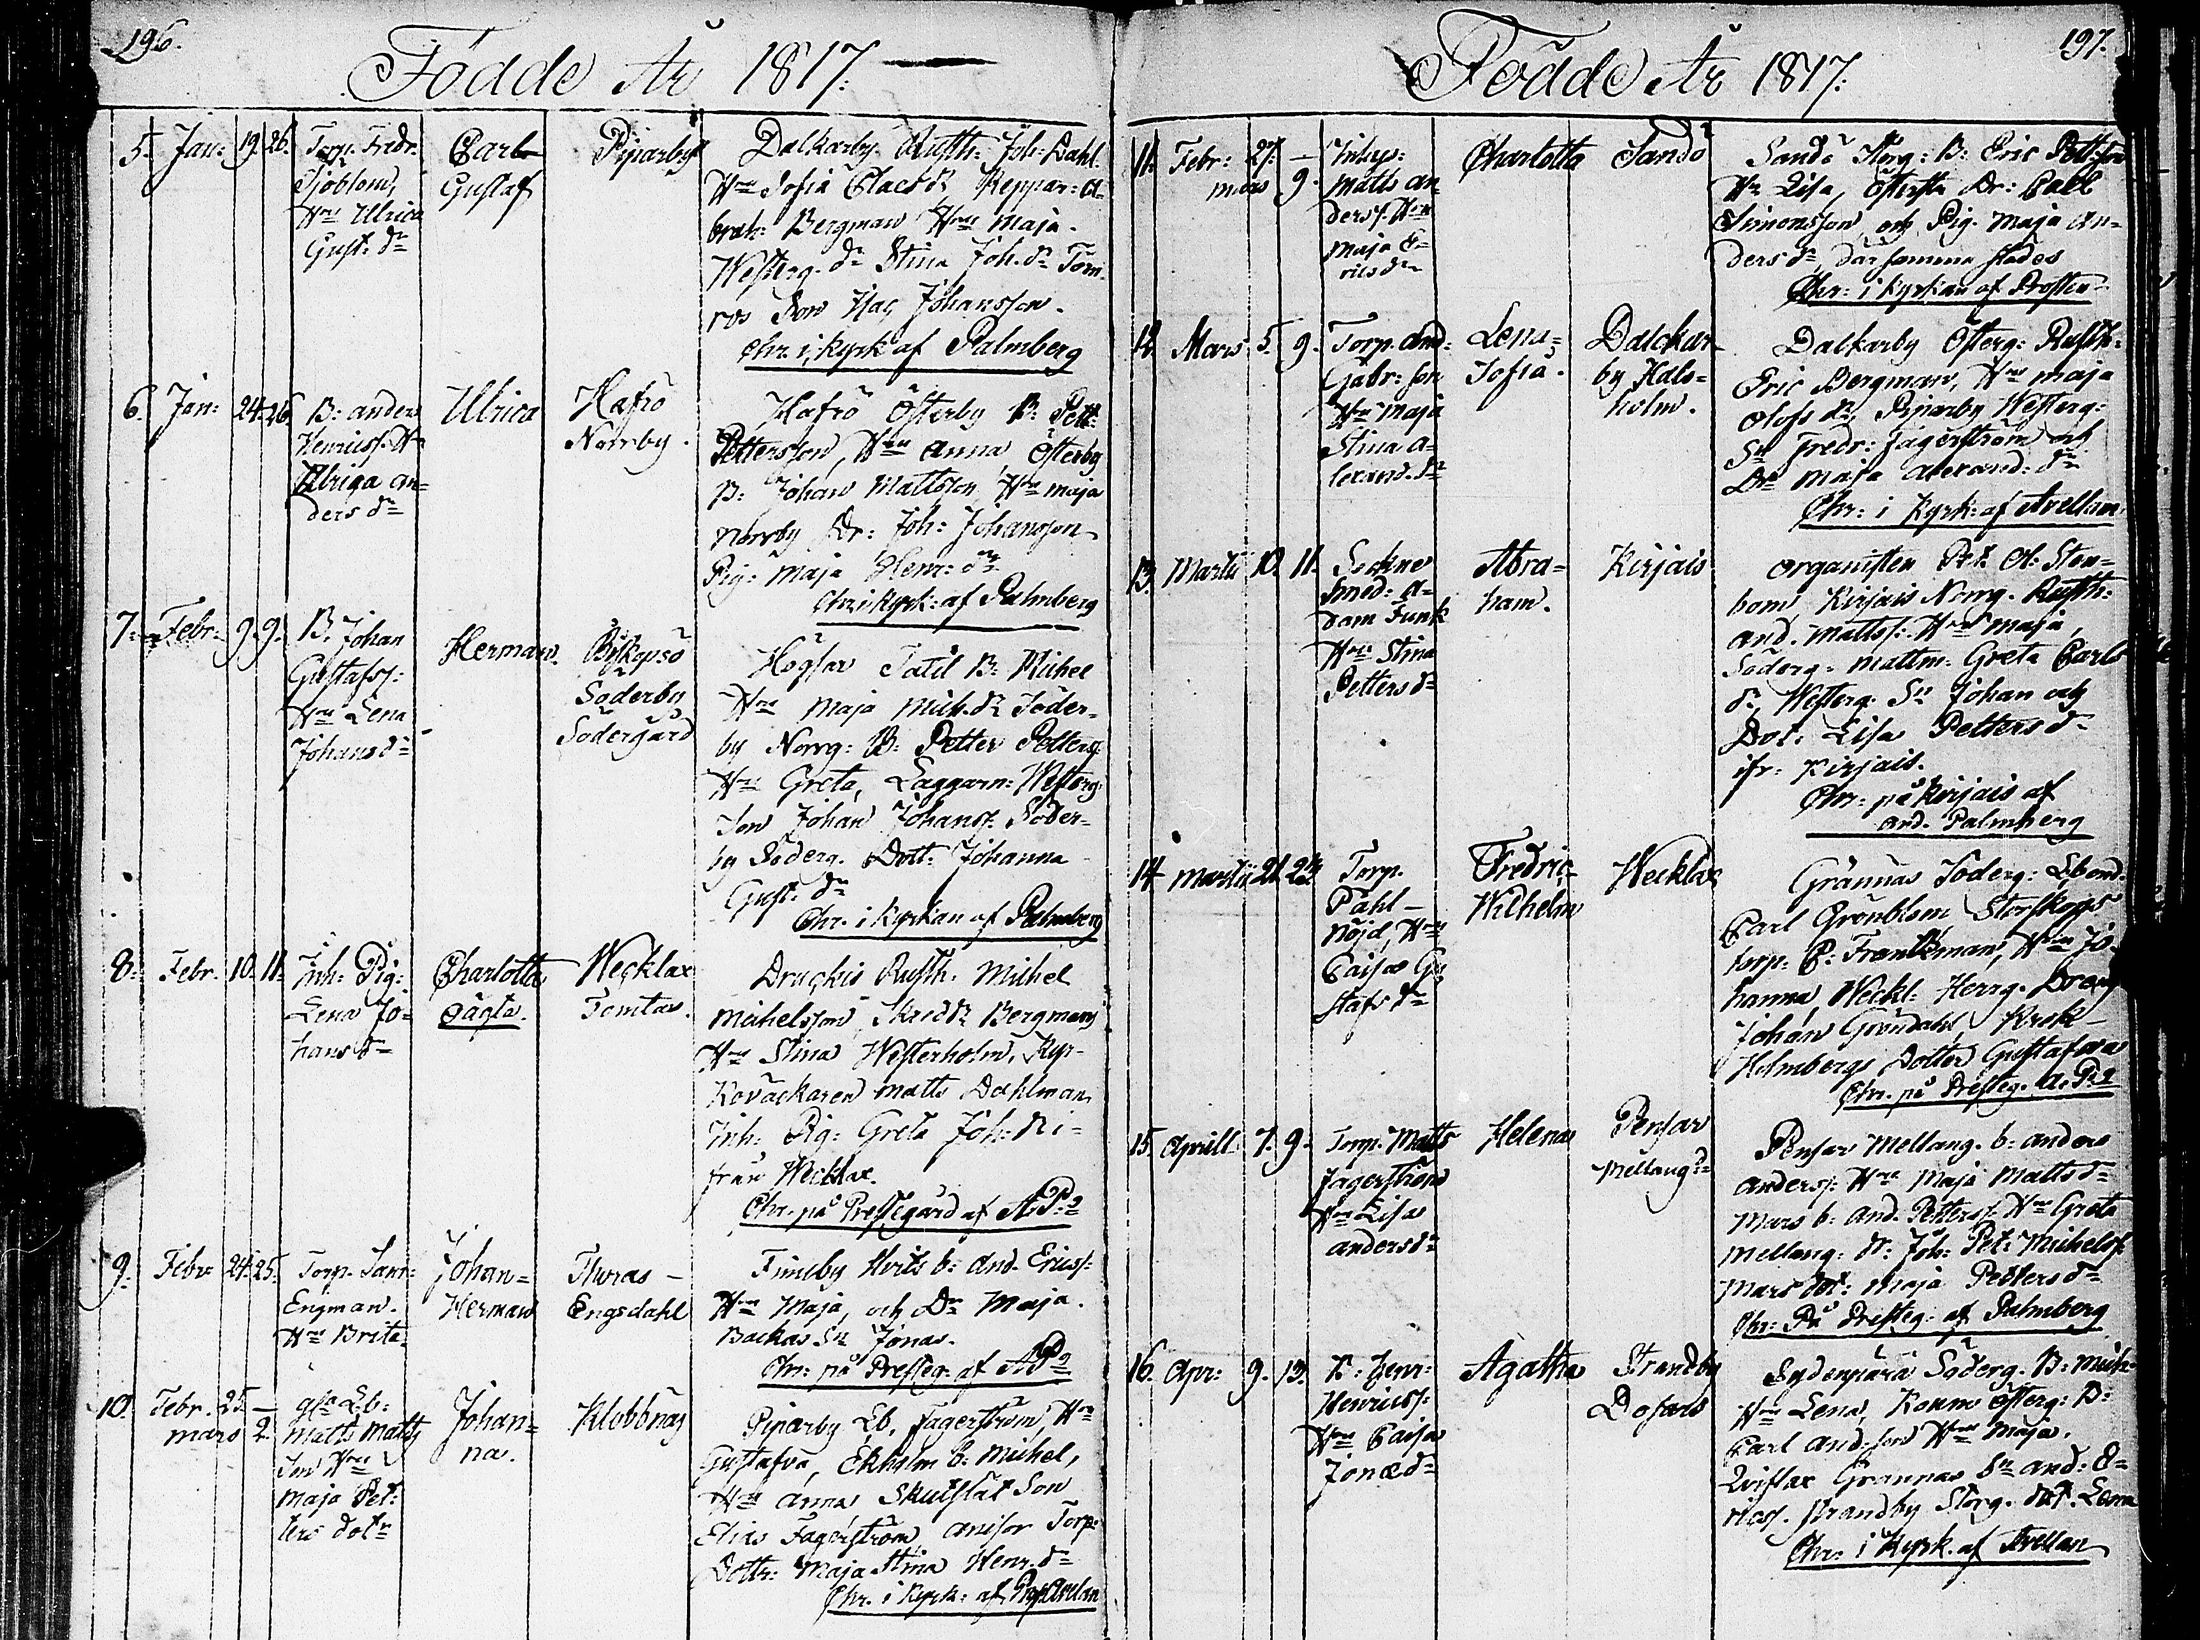 196.
Födde År 1817.
5. Jan: 19. 26.
Torp. Fredr.
Sjöblom,
Hru Ulrica
Gust. dr
Carl
Gustaf
Piparby
Dalkarby Rusth: Joh: Dahl
Hru Sofia Clæsdr
Bergman Hru Maja
Westerg. dr Stina Joh. dr Tom-
ros Son Isac Johansson.
Chr. i kyrk af Palmberg
6. Jan: 24. 26.
B: Anders
Henricss. Hru
Ulriga An-
ders dr
Ulrica
Hafrö
Norrby.
Hafrö Österby B: Pett:
Pettersson, Hru Anna Österby
B: Johan Mattsson, Hru Maja
Norrby Dr: Joh: Johansson
Pig: Maja Henr: dr
Chr: i kyrk: af Palmberg
7. Febr. 9. 9.
B. Johan
Gustafss:
Hru Lena
Johans dr
Herman.
Biskopsö
Söderby
Södergård
Högsar Tatil B: Michel
Hru Maja Mich. dr Söder-
by Norrg: B: Petter Petterss
Hru Greta, Laggarn: Westerg:
Son Johan Johanss. Söder-
by Söderg. Dott: Johanna
Gust: dr
Chr. i kyrkan af Palmberg
8. Febr. 10. 11.
Inh: Pig:
Lena Jo-
hans dr
Charlotta
oägta.
Wecklax
Tomtas.
Druckis Rusth. Michel
Michelsson, Skredr Bergmans
Hru Stina Westerholm, Kyr-
koväckaren Matts Dahlman,
Inh: Pig: Greta Joh: dr i-
från Wecklax.
Chr. på Prestegård af A. P.
9. Febr 24. 25.
Torp.
Engman.
Hru Brita
Johan-
Herman
Thoras
Engsdahl
Fineby Hvits b: And. Ericss:
Hru Maja, och Dr Maja.
Backas Sn Jonas.
Chr: på Presteg: af A. P.
10. Febr. 25. —
mars 2.
Lb:
Matts Matts
son Hru
Maja Pet-
ters dotr
Johan-
na.
Klobbnäs
Piparby Lb. Fagerström, Hru
Gustafva, Ekholm B: Michel,
Hru Anna Skutslät Son
Elias Fagerström, Torp:
Dottr: Maja Stina Henr. dr
Chr. i kyrk: af
197.
Födde År 1817.
11. Febr: 27. —
mars 9.
Inhys:
Matts An-
derss. Hru
Maja E-
rics dr
Charlotta
Sandö
Sandö Storg: B: Eric Pettsson
Hr Lisa, Dr: Carl
Simonsson och Pig. Maja An-
ders dr, där samma städes
Chr: i kyrkan af Prosten
12. Mars 5. 9.
Torp. And-
Gabr: son
Hru Maja
Stina A-
lexand. dr
Lena-
Sofia.
Dalckar-
by Hals-
holm.
Dalkarby Österg: Rusth:
Eric Bergman, Hru Maja
Olofs dr, Piparby Westerg:
Sn Fredr: Fagerström och
Dr Maja Alexand: dr
Chr: i Kyrk: af Avellan
13. Martii 10. 11.
Sockne
Smed: A-
dam Funk
Hru Stina
Petters dr
Abra-
ham.
Kirjais
Organisten
Kirjais Norrg. Rusth:
And. Mattss: Hru Maja,
Söderg: Mattm: Greta Carls
dr, Westerg. Sn Johan och
Dot: Lisa Petters dr
ifr: Kirjais.
Chr: på Kirjais af
And. Palmberg
14. Martii 21. 24.
Torp.
Påhl
Nöjd, Hru
Caisa Gu-
stafs dr
Fredric
Wilhelm
Wecklax
Grännäs Söderg:
Carl Grönblom, Storskogs
torp: C: Frankman, Hru Jo-
hanna Weckl: Herrg. Dräng
Johan Gröndahl Krok-
Holmbergs Dotter Gustafva
Chr. på Presteg. A. P.
15. Aprill 7. 9.
Torp. Matts
Jagerström
Hru Lisa
Anders dr
Helena
Pensar
Mellang:
Pensar Mellang. b: Anders
Anderss: Hru Maja Matts dr
Mars b: And. Petterss. Hru Greta
Mellang: dr: Joh: Pet: Michelss.
Mars dot: Maja Petters dr
Chr: På Presteg: af Palmberg
16. Apr: 9. 13.
B: Henr:
Henricss:
Hru Caisa
Jonæ dr
Agatha
Strandby
Dofars
Sydenperä Söderg. B: Mich:
Hru Lena, Österg: B:
Carl And: son Hru Maja.
Qvistlax Grännäs Sn And: E-
ricss. Strandby Storg. dot. Lena
Chr: i Kyrk. af Avellan